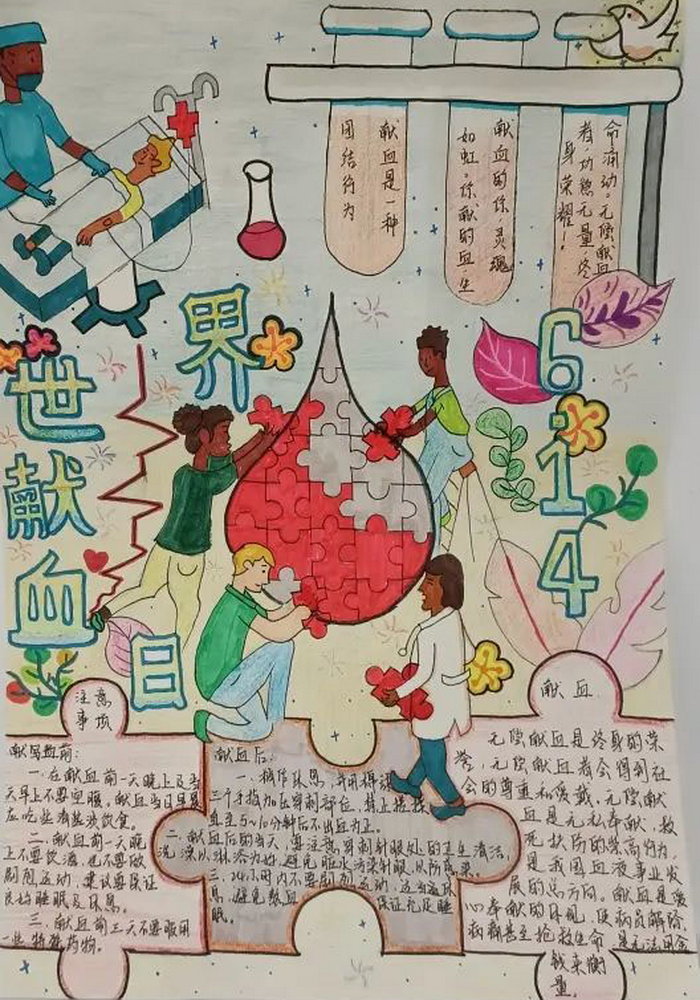 献血是一种
团结行为
献血的你,灵魂
如虹。你献的血,生
命涌动。无偿献血
者,功德无量,终
身荣耀!
世界献血日
6
1
4
注意
事项
献血前:
一、在献血前一天晚上及当
天早上不要空腹。献血当日早晨
应吃些清淡饮食。
二、献血前一天晚
上不要饮酒,也不要做
剧烈运动,
良好睡眠及休息。
三、献血前三天不要服用
药物。
献血后:
三个手指加压穿刺部位,
直至5~10分钟后不出血为止。
二、献血后的当天,要注意穿刺针眼处的卫生清洁,
洗澡以淋浴为好,避免脏水污染针眼,以防感染。
三、24小时内不要剧烈运动,
息,避免熬夜,保证充足睡
眠。
献血
无偿献血是终身的荣
誉,无偿献血者会得到社
会的尊重和爱戴。无偿献
血是无私奉献,救
死扶伤的崇高行为,
是我国血液事业发
展的总方向。献血是爱
心奉献的体现,使病员解除
病痛甚至抢救生命,是无法用金
钱来衡
量。